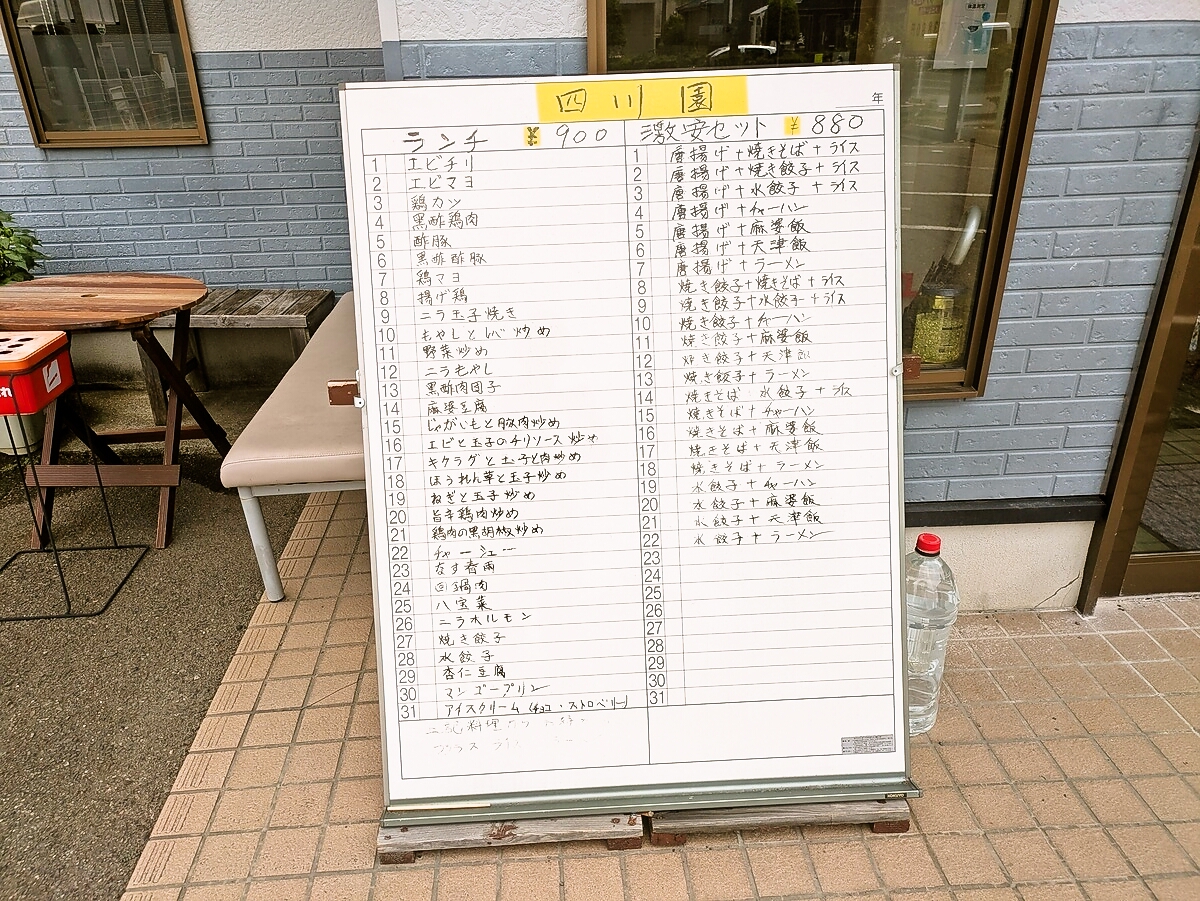 四川園
年
ランチ ¥900
1 エビチリ
2 エビマヨ
3 鶏カツ
4 黒酢鶏肉
5 酢豚
6 黒酢酢豚
7 鶏マヨ
8 揚げ鶏
9 ニラ玉子焼き
10 もやしとレバ炒め
11 野菜炒め
12 ニラもやし
13 黒酢肉団子
14 麻婆豆腐
15 じゃがいもと豚肉炒め
16 エビと玉子のチリソース炒め
17 キクラゲと玉子と肉炒め
18 ほうれん草と玉子炒め
19 ねぎと玉子炒め
20 旨辛鶏肉炒め
21 鶏肉の黒胡椒炒め
22 チャーシュー
23 なす春雨
24 回鍋肉
25 八宝菜
26 ニラホルモン
27 焼き餃子
28 水餃子
29 杏仁豆腐
30 マンゴープリン
31 アイスクリーム (チョコ・ストロベリー)
料理
激安セット ¥880
1 唐揚げ+焼きそば+ライス
2 唐揚げ+焼き餃子+ライス
3 唐揚げ+水餃子+ライス
4 唐揚げ+チャーハン
5 唐揚げ+麻婆飯
6 唐揚げ+天津飯
7 唐揚げ+ラーメン
8 焼き餃子+焼きそば+ライス
9 焼き餃子+水餃子+ライス
10 焼き餃子+チャーハン
11 焼き餃子+麻婆飯
12 焼き餃子+天津飯
13 焼き餃子+ラーメン
14 焼きそば 水餃子+ライス
15 焼きそば+チャーハン
16 焼きそば+麻婆飯
17 焼きそば+天津飯
18 焼きそば+ラーメン
19 水餃子+チャーハン
20 水餃子+麻婆飯
21 水餃子+天津飯
22 水餃子+ラーメン
23
24
25
26
27
28
29
30
31
KOKUYO